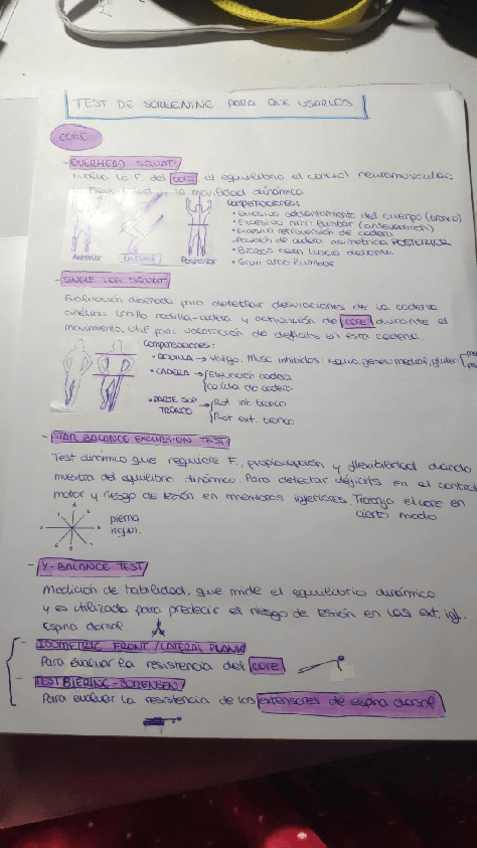 TEST DE SCREENING PARA QUE USARLOS
CORE
- OVERHEAD SQUAT
Evalúa la F. del core el equilibrio el control neuromuscular,
la flexibilidad y la movilidad dinámica
Compensaciones:
• Excesivo adelantamiento del cuerpo (tronco)
• Excesiva lumbar (anteversión)
• Excesiva retroversión de cadera
• Posición de cadera asimétrica POSTERIOR
• Brazos caen hacia delante
• Gran arco lumbar
Anterior Posterior
- SINGLE LEG SQUAT
Evaluación diseñada para detectar desviaciones de la cadena
cinética tobillo rodilla-cadera y activación de core durante el
movimiento. Útil para valoración de déficits en esta cadena.
Compensaciones:
• RODILLA → Valgo. Musc. inhibidos:
• CADERA → Elevación cadera
Caída de cadera
• PARTE SUP TRONCO → Rot. int. tronco
Rot. ext. tronco
- STAR BALANCE EXCURSION TEST
Test dinámico que requiere F., propiocepción y flexibilidad dando
muestra del equilibrio dinámico. Para detectar déficits en el control
motor y riesgo de lesión en miembros inferiores. Trabaja el core en
cierto modo
pierna
- Y-BALANCE TEST
Medición de habilidad, que mide el equilibrio dinámico
y es utilizado para predecir el riesgo de lesión en las ext. inf.
Espina dorsal
- ISOMETRIC FRONT / LATERAL PLANK
Para evaluar la resistencia del core
- TEST BIERING-SORENSEN
Para evaluar la resistencia de los extensores de espina dorsal